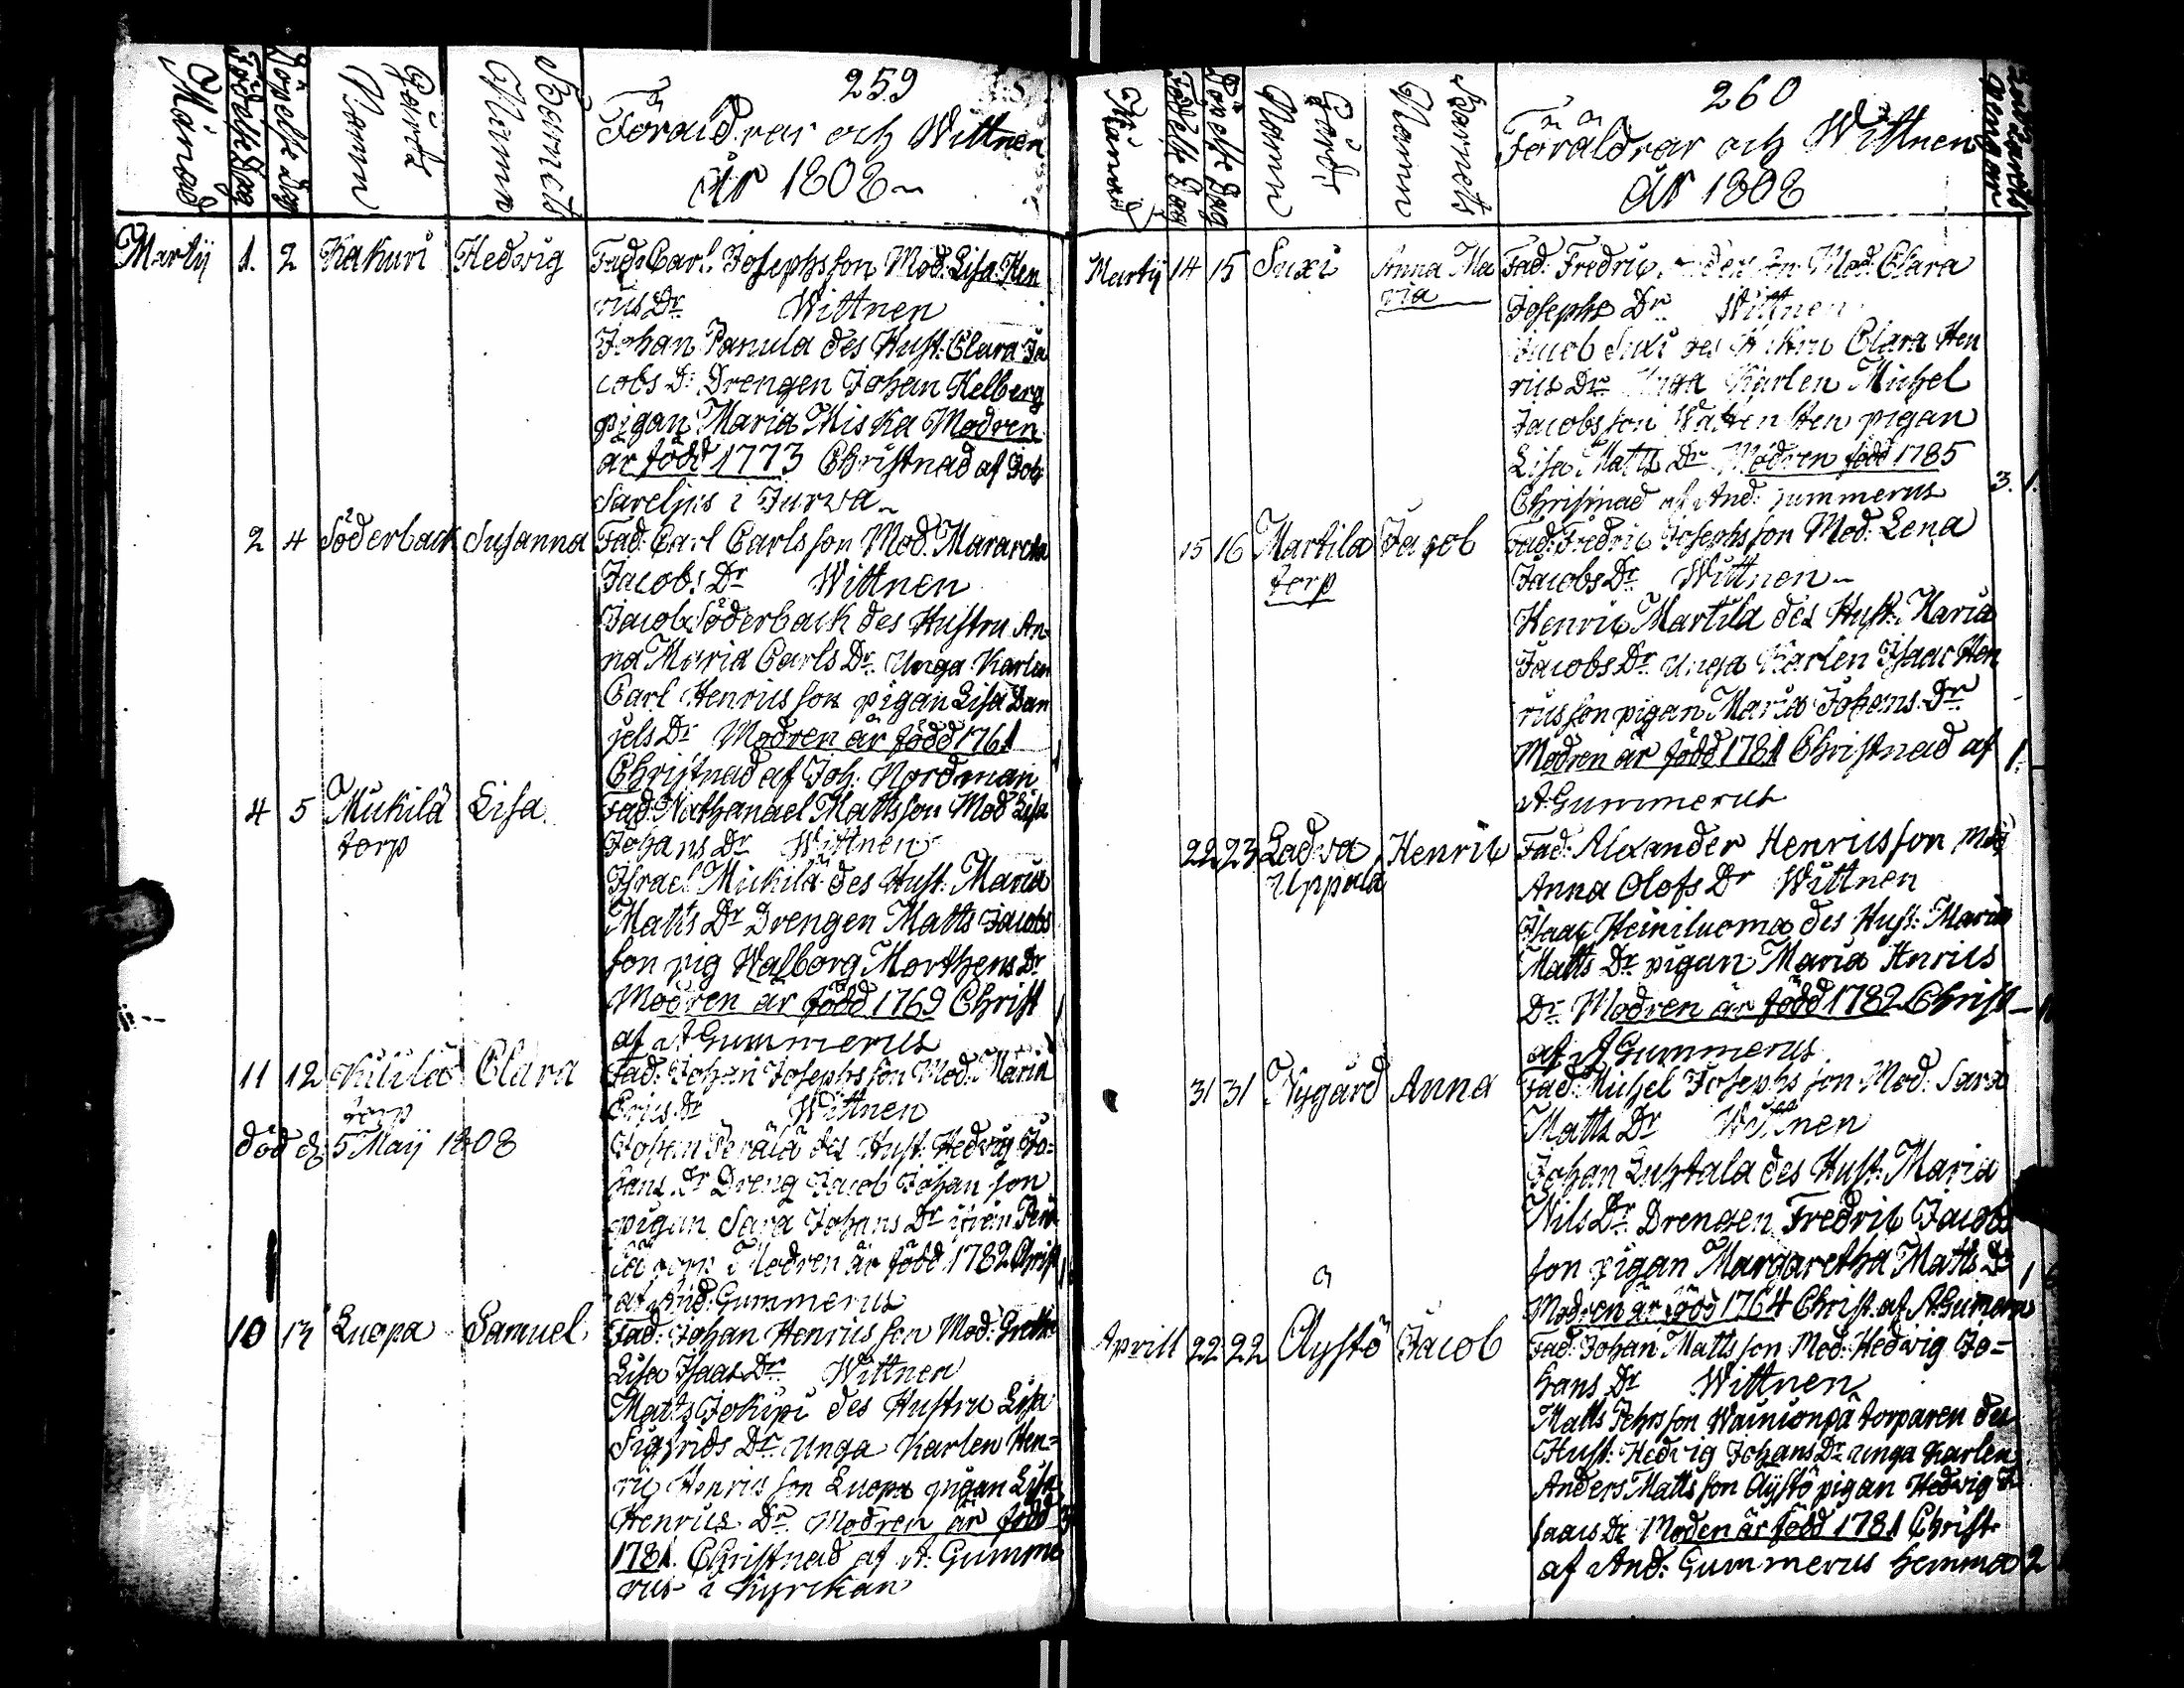 259
Månad
Födelse Dag
Döpelse Dag
Gårds Namn
Barnets Namn
Föräldrar och Wittnen
år 1808
Martij 1. 2 Kakuri Hedvig Fad: Carl Josephsson Mod: Lisa Hen
rics Dr Wittnen
Johan Panula des Hust: Clara Ja
cobs D: Drengen Johan Kelberg
pigan Maria Miska Modren
är född 1773 Christnad af Joh:
Sareljus i Jurva
2 4 Söderback Susanna Fad: Carl Carlsson Mod: Margreta
Jacobs Dr Wittnen
Jacob Söderback des Hustru An
na Maria Carls Dr Unga Karlen
Carl Henricsson pigan Lisa Dan
jels Dr Modren är född 1761
Christnad af Joh: Nordman
4 5 Mukila Lisa Fad: Nathanael Mattsson Mod Lisa
torp Johans Dr Wittnen
Israel Mickilä des Hust: Maria
Matts Dr Drengen Matts Jacobs
son pig Walborg Morthens Dr
Modren är född 1769 Christ
af A Gummerus
11 12 Clara Fad: Johan Josephsson Mod: Maria
torp Erics Dr Wittnen
död d: 5 Maij 1808 Johan Perälä des Hust: Hedvig Jo=
hans Dr Dreng Jacob Johansson
pigan Sara Johans Dr
Modren är född 1782 Christ
af And: Gummerus
10 13 Luopa Samuel Fad: Johan Henricsson Mod: Greta
Lisa Isaacs Dr Wittnen
Matts Jokipi des Hustru Lisa
Sigfrids Dr Unga Karlen Hen=
ric Henricsson Luopa pigan Lisa
Henrics Dr Modren är född
1781. Christnad af A: Gumme
rus i Kyrckan
260
Månad
Födelse Dag
Döpelse Dag
Gårds Namn
Barnets Namn
Föräldrar och Wittnen
år 1808
Martij 14 15 Suxi Anna Ma Fad: Fredric Mod: Clara
ria Josephs Dr Wittnen
Jacob Suxi des Hustru Clara Hen
rics Dr Unga Karlen Michel
Jacobsson pigan
Lisa Matts Dr Modren född 1785
Christnad af And: Gummerus 3. 1.
15 16 Martila Jacob Fad: Fredric Josephsson Mod: Lena
torp Jacobs Dr Wittnen
Henric Martila des Hust: Maria
Jacobs Dr Unga Karlen Isaac Hen
ricsson pigan Maria Johans Dr
Modren är född 1781 Christnad af 1.
A Gummerus
22 23 Ladva Henric Fad: Alexander Henricsson Mod
Uppala Anna Olofs Dr Wittnen
Isaac Heiniluoma des Hust: Maria
Matts Dr pigan Maria Henrics
Dr Modren är född 1782 Christ
af A Gummerus
31 31 Nygård Anna Fad: Michel Josephsson Mod: Sara
Matts Dr Wittnen
Johan Luhtala des Hust: Maria
Nils Dr Drengen Fredric Jacob
son pigan Margaretha Matts Dr
Modren är född 1764 Christ. af A Gummeru 1
Aprill 22 22 Äystö Jacob Fad: Johan Mattsson Mod: Hedvig Jo=
hans Dr Wittnen
Matts Jehrsson Wainionpä torparen des
Hust: Hedvig Johans Dr unga Karlen
Anders Mattsson Äystö pigan Hedvig I
saacs Dr Modren är född 1781 Christ
af And: Gummerus hemma 2